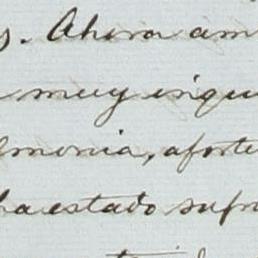 s. Ahora am
muy inqui
lmonia, aforte
ha estado sufr